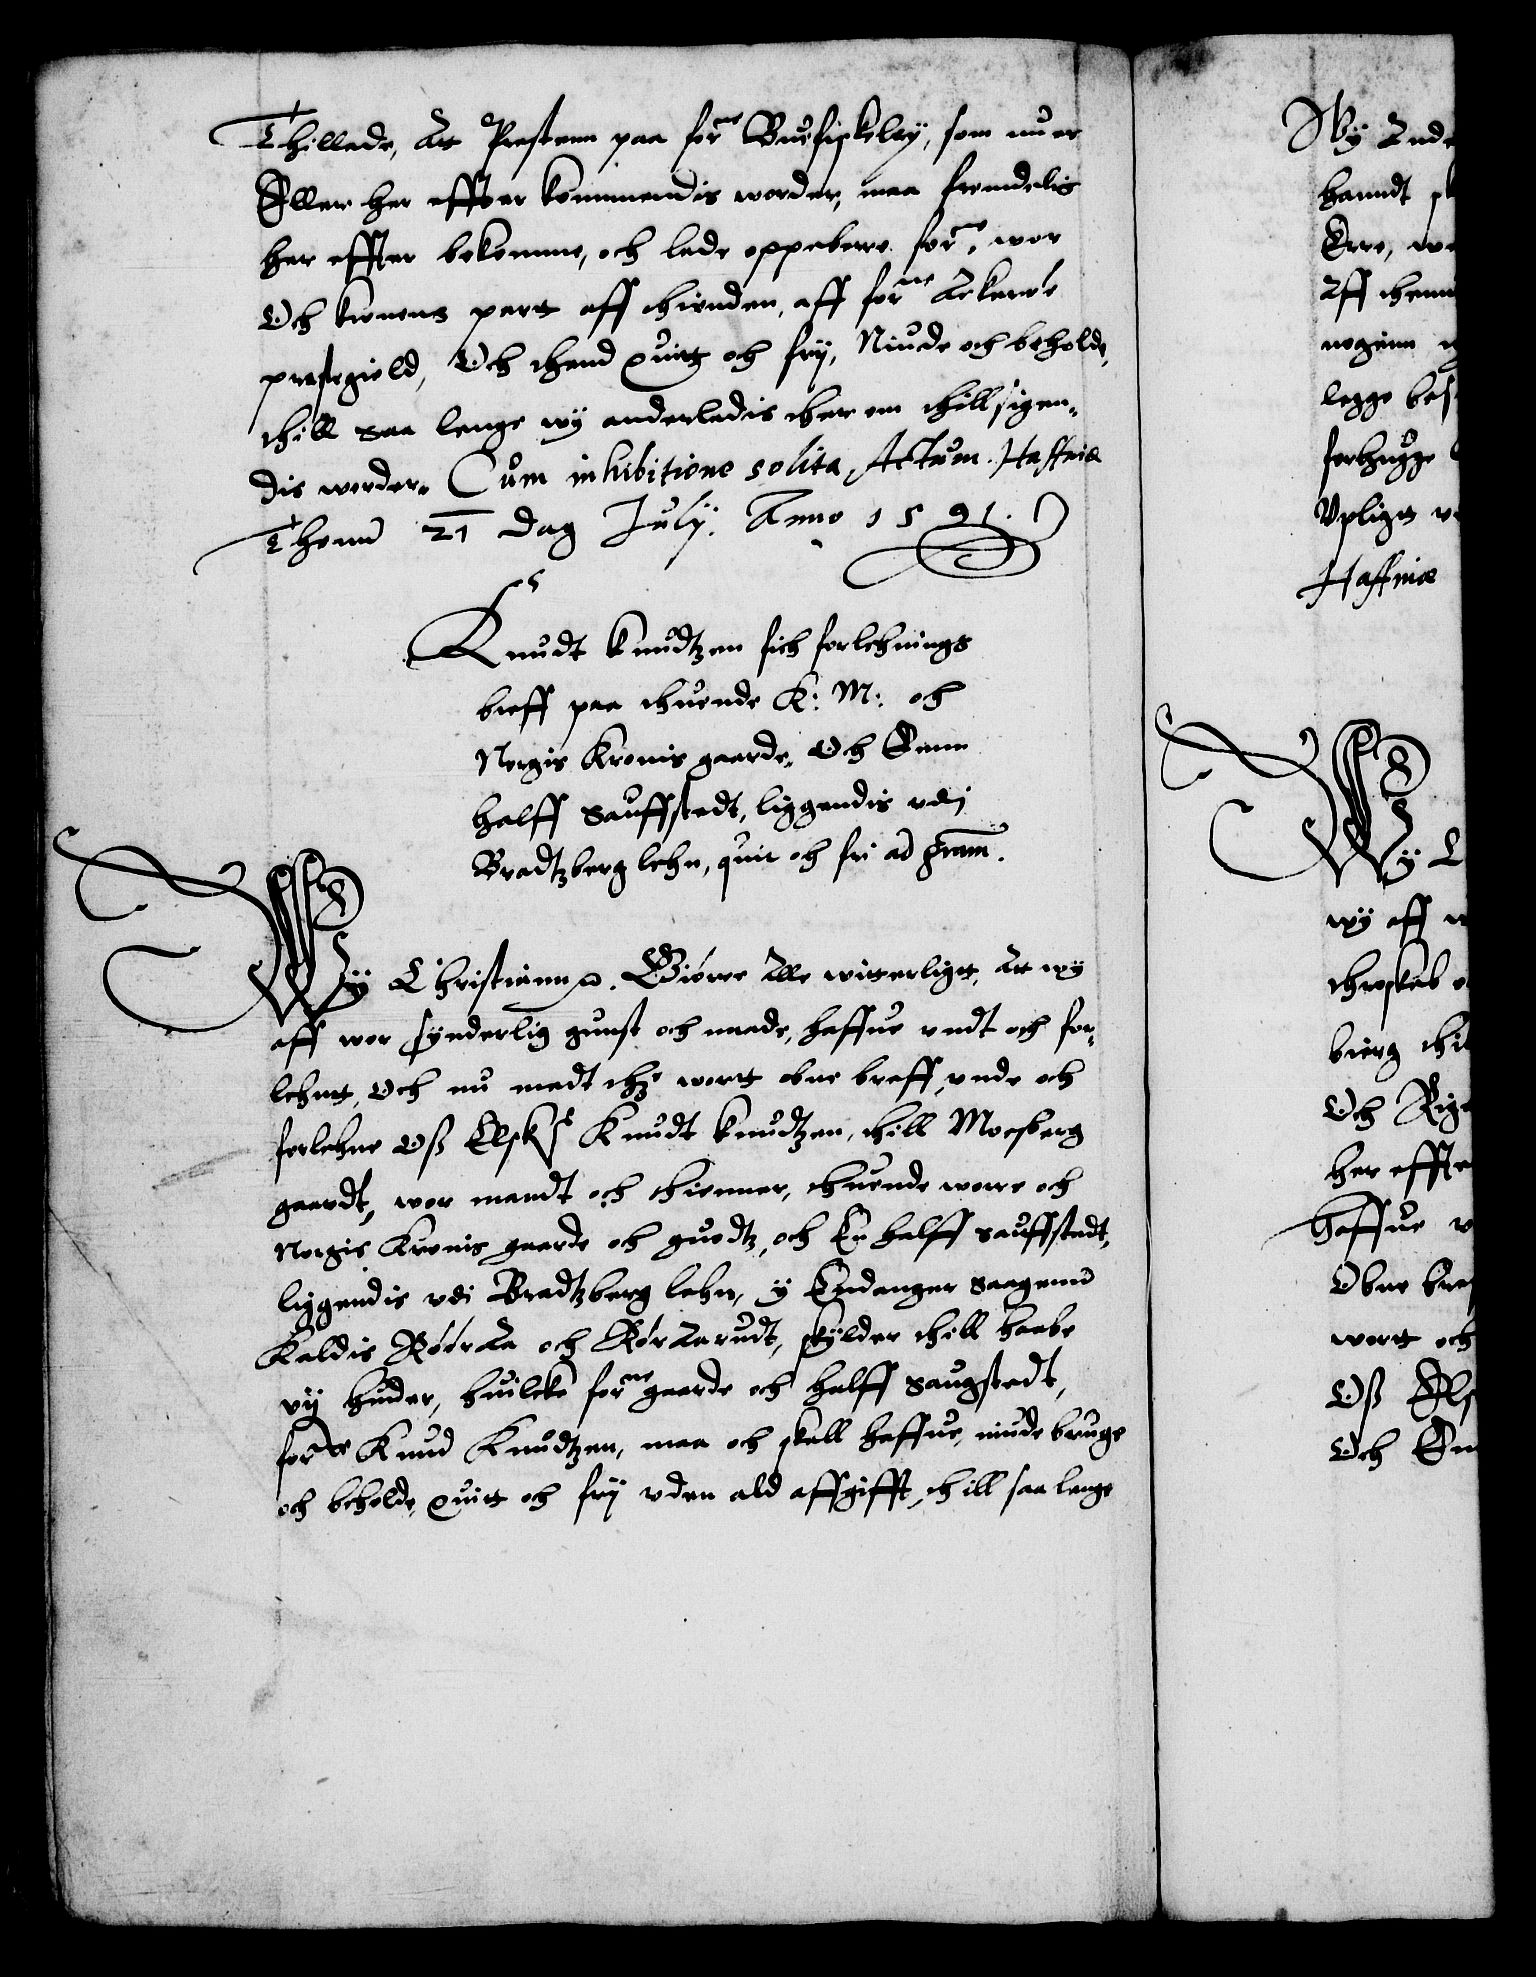 Thillade, Att Prestenn paa forne Buefiskeløy, som nu er
Eller her effter kommendis worder, maa fremdelis
her effter bekomme, och lade oppeberre forne, wor
Och kronens part aff thienden, aff forne Akerøe
prestegield, Och thend quitt och frij, Niude och beholde,
thill saa lenge wij anderledis ther om thillsigen-
dis worder. Cum inhibitione solita, Actum. Haffniæ
Thend 21 dag Julij. Anno 1591.
Knudt Knudtzen fich forlehnings
breff paa thuende K: M: och
Norgis Kronis gaarde, Och Enn
halff Sauffstedt, liggendis vdi
Bradtzberg lehn, quit och fri ad gram.
Wij Christiann. Giøre Alle witterligt, Att wij
aff wor synderlig gunst och naade, haffue vndt och for-
lehnt, Och nu medt thz wortt obne breff, vnde och
forlehne Oß Elsk Knudt Knudtzen, thill Moesberg
gaardt, wor mandt och thienner, thuende worre och
Norgis Kronis gaarde och guodtz, och En halff Sauffstedt,
liggendis vdi Bradtzberg lehn, y Endanger Saagenn
Kaldis Røøraa och Røraarudt, skylder thill haabe
vij huder, huilcke forne gaarde och halff Saugstedt,
forne Knud Knudtzen, maa och skall haffue, niude bruge
och beholde, quitt och frij vden ald affgifft, thill saa lenge
Wij Ande
harundt
Erre, we
Aff them
nogenn
legge bes
forhugge
Vpligtt
Haffniæ
Wij C
wij aff w
throskab
bierg thi
Och Rige
her effte
haffue v
Obne bre
wortt och
Oß Els
Och En